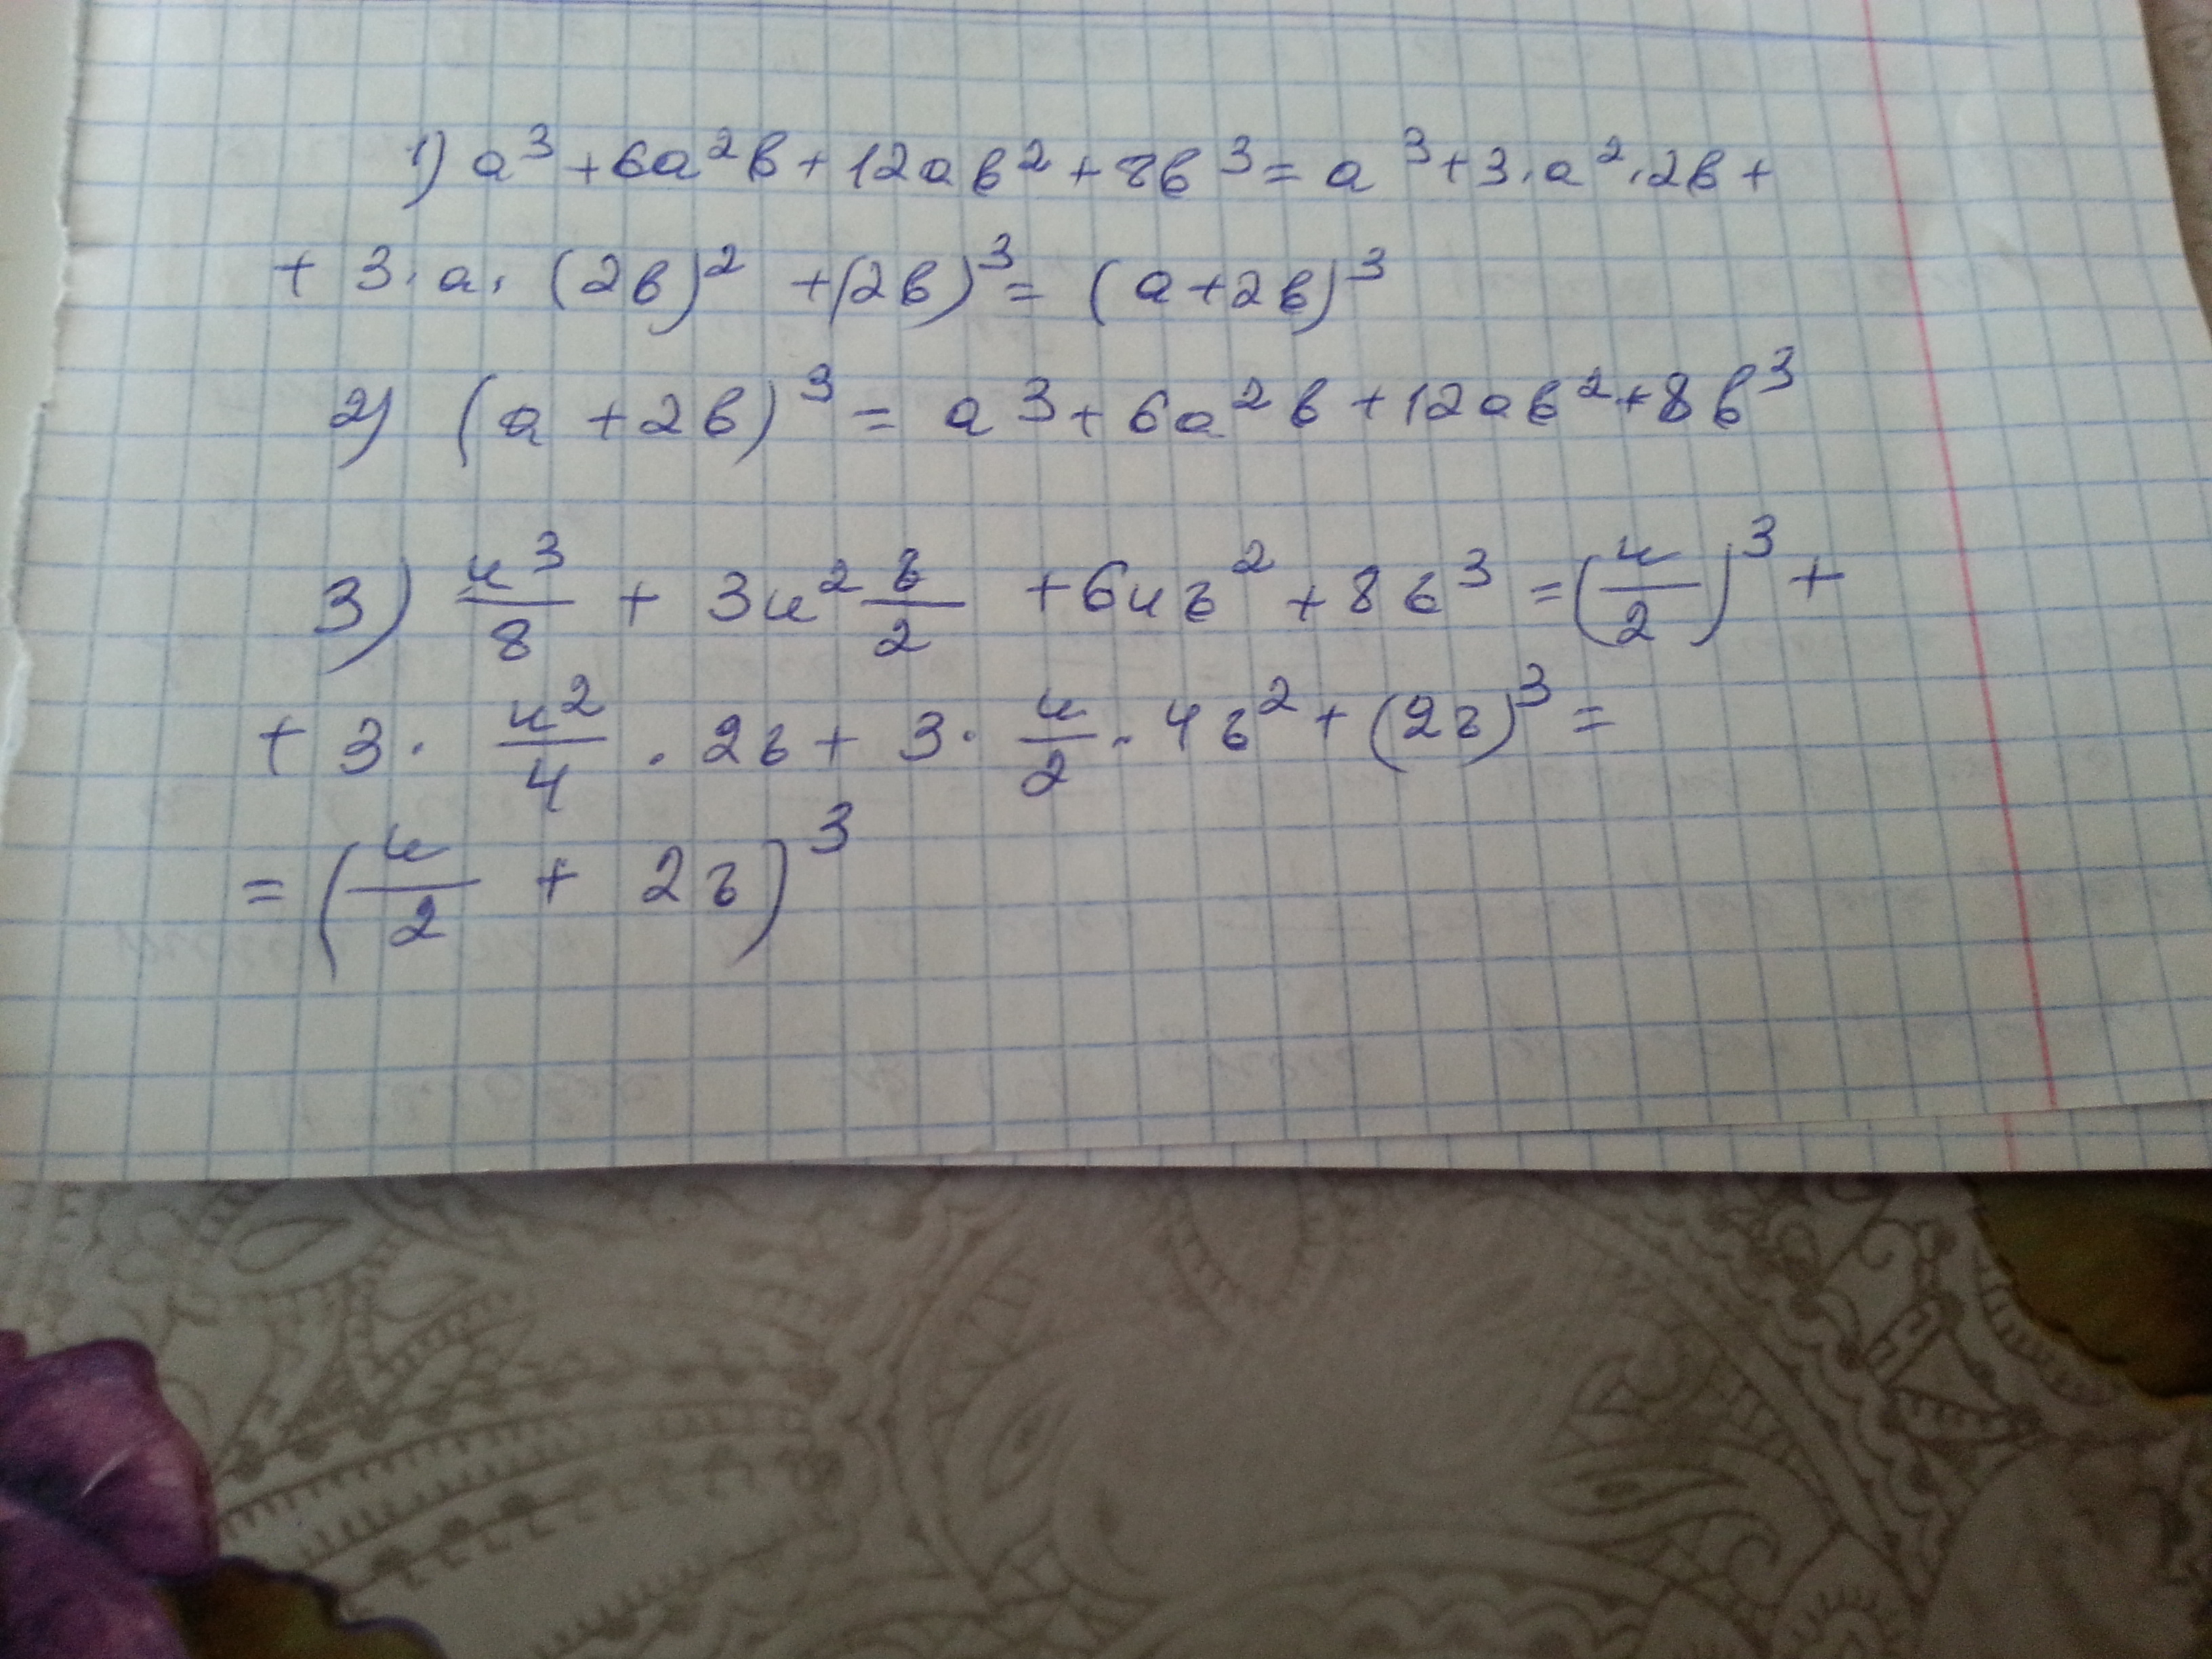 1) a³ + 6a²b + 12ab² + 8b³ = a³ + 3·a²·2b +
+ 3·a·(2b)² + (2b)³ = (a + 2b)³
2) (a + 2b)³ = a³ + 6a²b + 12ab² + 8b³
3) u³/8 + 3u² z/2 + 6uz² + 8z³ = (u/2)³ +
+ 3 · u²/4 · 2z + 3 · u/2 · 4z² + (2z)³ =
= (u/2 + 2z)³